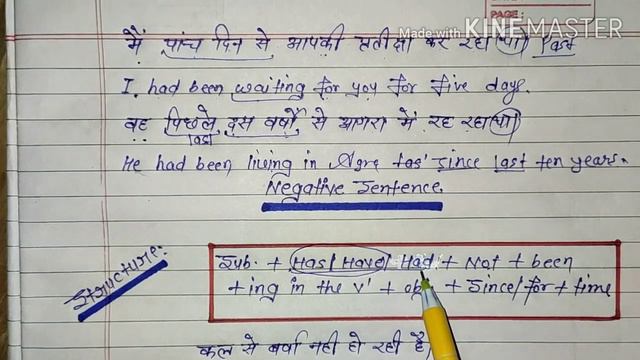 DATE
PAGE:
Made with KINEMASTER
मैं पांच दिन से आपकी प्रतीक्षा कर रहा था Past
I had been waiting for you for five days.
वह पिछले दस वर्षों से आगरा में रह रहा था
last
He had been living in Agra since last ten years.
Negative Sentence.
Structure:
Sub. + Has/Have/Had + Not + been
+ing in the v' + ob + Since/for + time
कल से वर्षा नहीं हो रही है